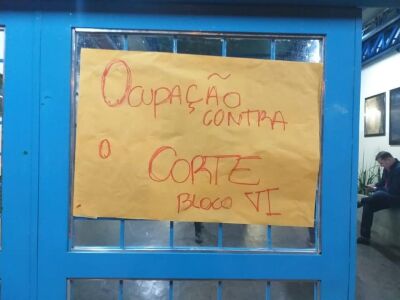 OCUPAÇÃO
CONTRA
O CORTE
BLOCO VI